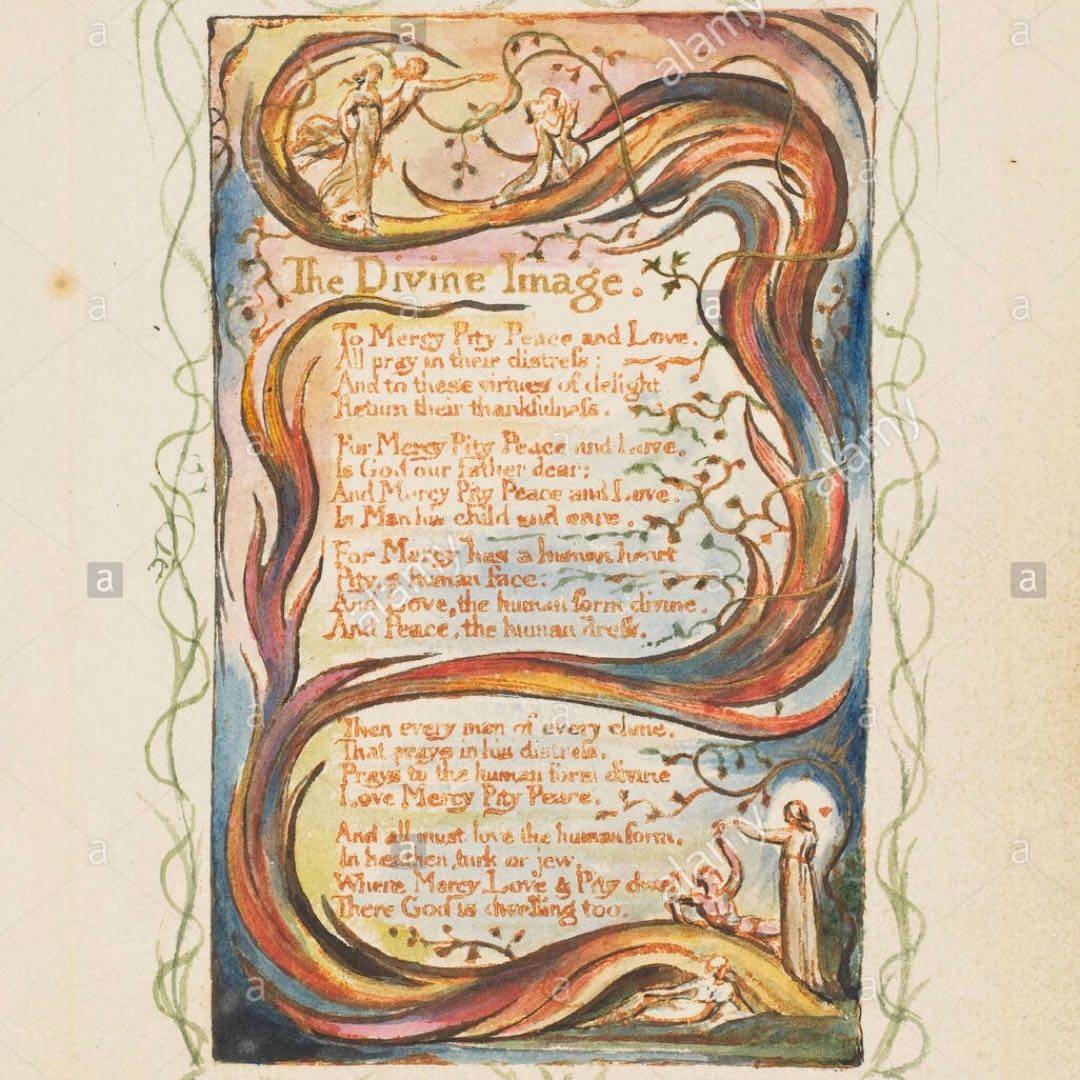 alamy
The Divine Image.
To Mercy Pity Peace and Love,
All pray in their distreſs:
And to these virtues of delight
Return their thankfulneſs.
For Mercy Pity Peace and Love,
Is God our father dear:
And Mercy Pity Peace and Love,
Is Man his child and care.
alamy
For Mercy has a human heart
Pity, a human face:
And Love, the human form divine,
And Peace, the human dreſs.
alamy
Then every man of every clime,
That prays in his distreſs,
Prays to the human form divine
Love Mercy Pity Peace.
And all must love the human form,
In heathen, turk or jew.
Where Mercy, Love & Pity dwell
There God is dwelling too.
alamy